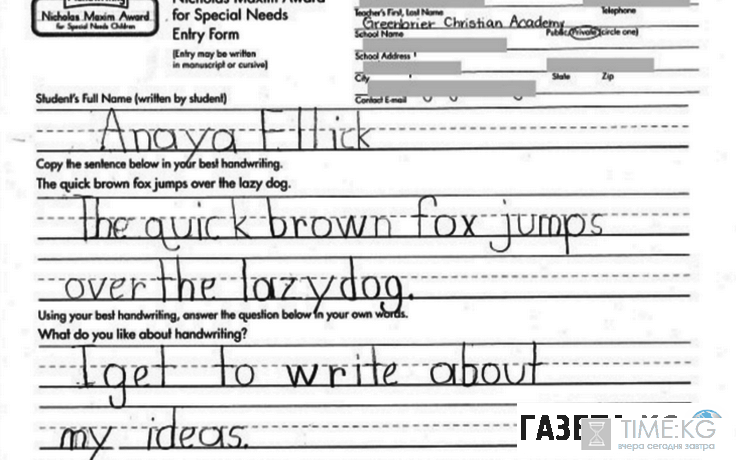 Nicholas Maxim Award
for Special Needs Children
Nicholas Maxim Award
for Special Needs
Entry Form
(Entry may be written
in manuscript or cursive)
Teacher's First, Last Name
Telephone
Greenbrier Christian Academy
School Name
Public/Private (circle one)
School Address
City
State
Zip
Contact E-mail
Student's Full Name (written by student)
Anaya Ellick
Copy the sentence below in your best handwriting.
The quick brown fox jumps over the lazy dog.
The quick brown fox jumps
over the lazy dog.
Using your best handwriting, answer the question below in your own words.
What do you like about handwriting?
I get to write about
my ideas.
TIME.KG
вчера сегодня завтра